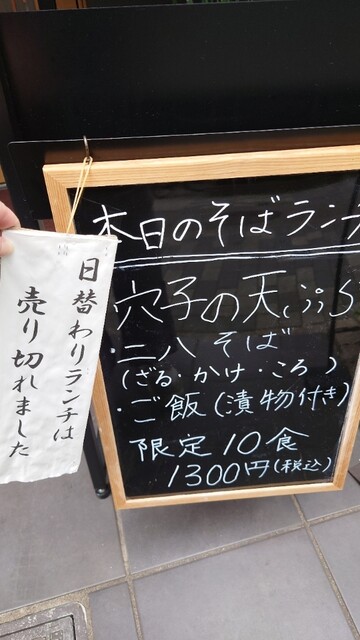 本日のそばランチ
穴子の天ぷら
・二八そば
(ざる・かけ・ころ)
・ご飯(漬物付き)
限定10食
1300円(税込)
日替わりランチは
売り切れました